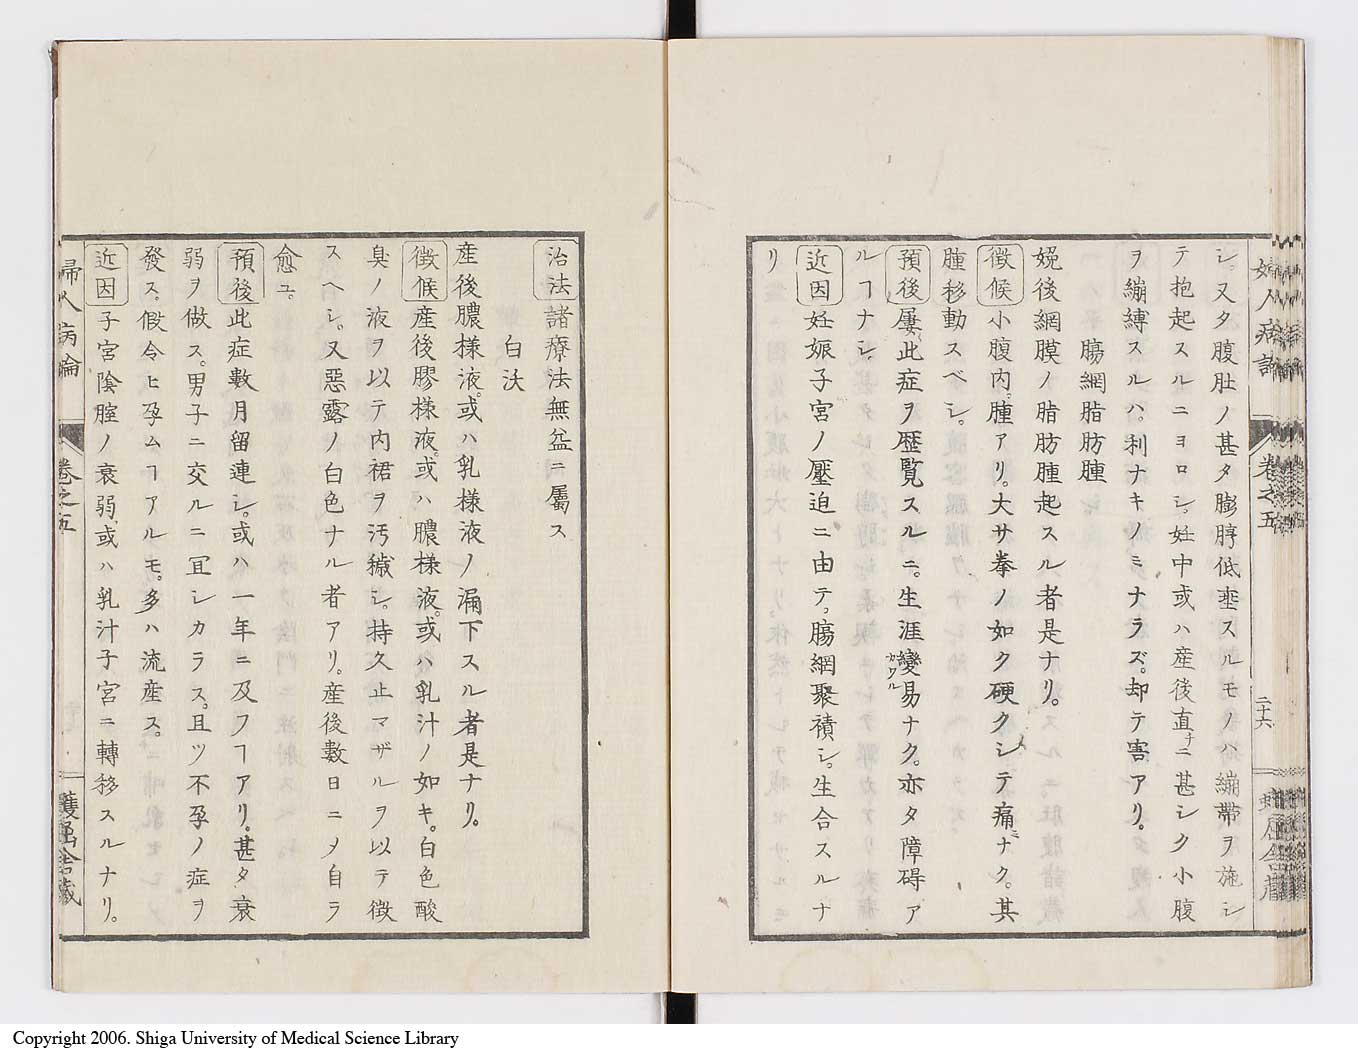 シ。又タ腹肚ノ甚タ膨脝低垂スルモノハ繃帶ヲ施シ
テ抱起スルニヨロシ。妊中或ハ産後直ナニ甚シク小腹
ヲ繃縛スルハ。利ナキノミナラズ。却テ害アリ。
膓網脂肪腫
娩後網膜ノ脂肪腫起スル者是ナリ。
徴候小腹内。腫アリ。大サ拳ノ如ク硬クシテ痛ミナク。其
腫移動スベシ。
預後屢此症ヲ歴覧スルニ。生涯變易カワルナク。亦タ障碍ア
ルヿナシ。
近因妊娠子宮ノ壓迫ニ由テ。膓網聚積シ。生合スルナ
リ
婦人病論
卷之五
二十六
治法諸療法無益ニ屬ス
白汏
産後膿様液。或ハ乳様液ノ漏下スル者是ナリ。
徴候産後膠様液。或ハ膿様液。或ハ乳汁ノ如キ。白色酸
臭ノ液ヲ以テ内裙ヲ汚穢シ。持久止マザルヲ以テ徴
スヘシ。又惡露ノ白色ナル者アリ。産後數日ニメ自ラ
愈ユ。
預後此症數月留連シ。或ハ一年ニ及フヿアリ。甚タ衰
弱ヲ做ス。男子ニ交ルニ冝シカラス。且ツ不孕ノ症ヲ
發ス。假令ヒ孕ムヿアルモ。多ハ流産ス。
近因子宮陰腟ノ衰弱。或ハ乳汁子宮ニ轉移スルナリ。
婦人病論
卷之五
Copyright 2006. Shiga University of Medical Science Library